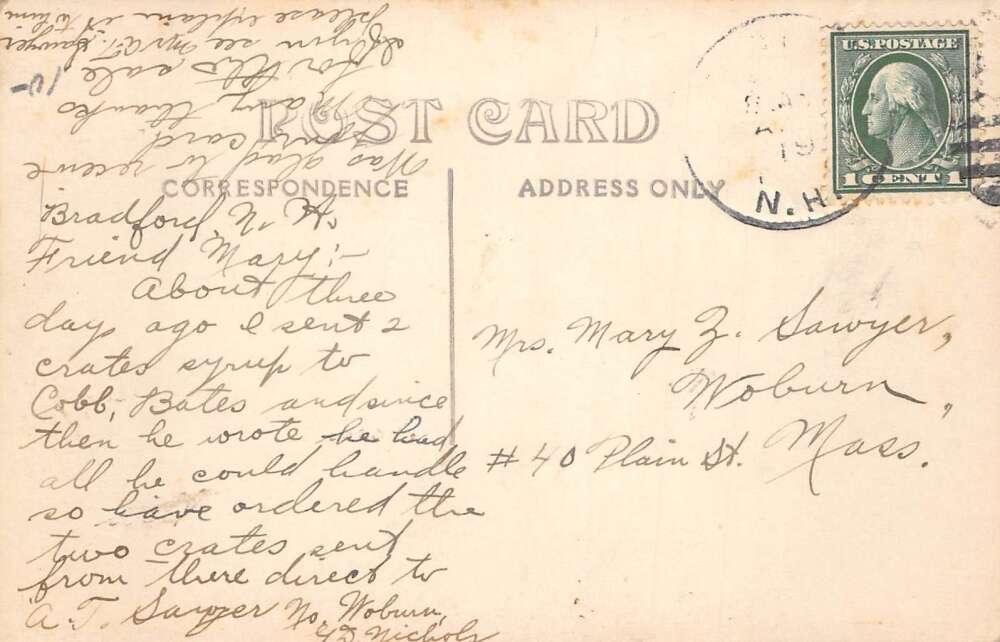 POST CARD
CORRESPONDENCE
ADDRESS ONLY
U.S. POSTAGE
1 CENT 1
19
N.H.
Bradford, N. H.
Friend Mary;-
About three
days ago I sent 2
crates syrup to
Cobb, Bates and since
then he wrote he had
all he could handle
so have ordered the
two crates sent
from there direct to
A. T. Sawyer No. Woburn,
Nichols
Was glad to receive
your card.
Many thanks
for this sale
If you see Mr. A. T. Sawyer
please explain it to him
Mrs. Mary Z. Sawyer,
Woburn,
Mass.
# 40 Plain St.